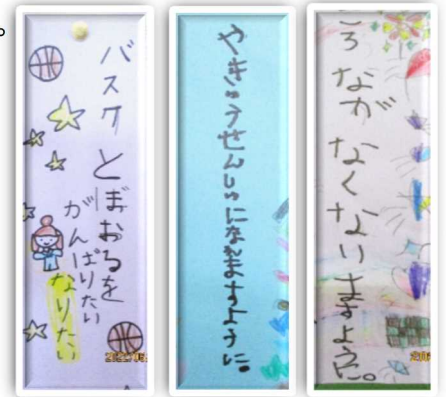 バスクとぼおるを
がんばりたい
なりたい
やきゅうせんしゅになれますように。
ころなが なくなりますように。